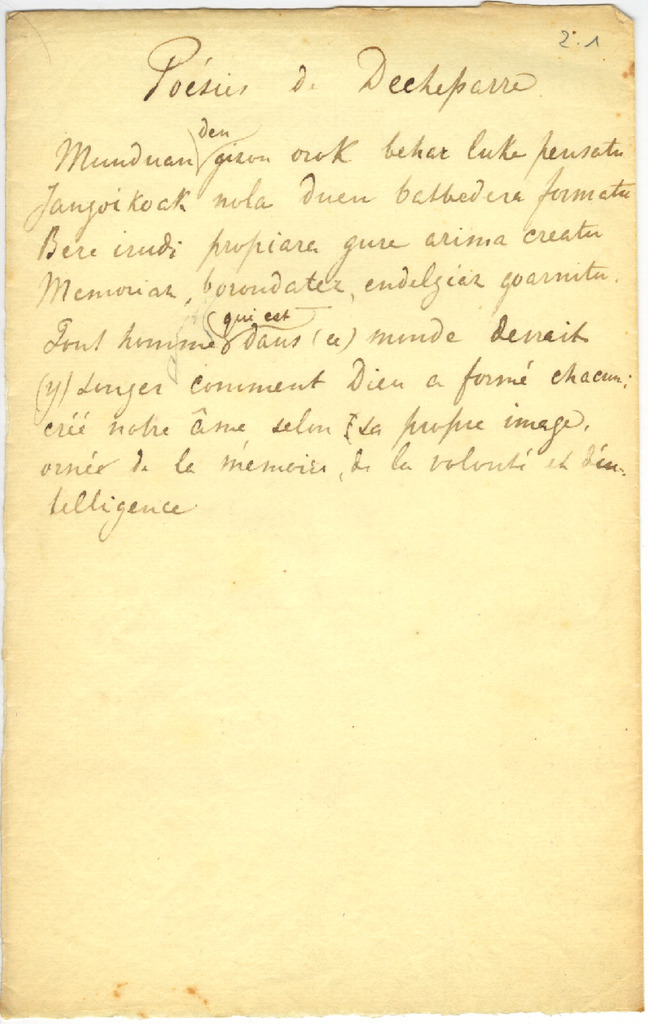 2. 1
Poésies de Decheparre
Munduan den gizon orok behar luke pensatu
Jangoikoak nola duen batbedera formatu
Bere irudi propiara gure arima creatu
Memoriaz, borondatez, endelgiaz goarnitu.
Tout homme qui est dans (ce) monde devrait
(y) songer comment Dieu a formé chacun;
créé notre âme selon sa propre image,
ornée de la mémoire, de la volonté et d'in-
telligence